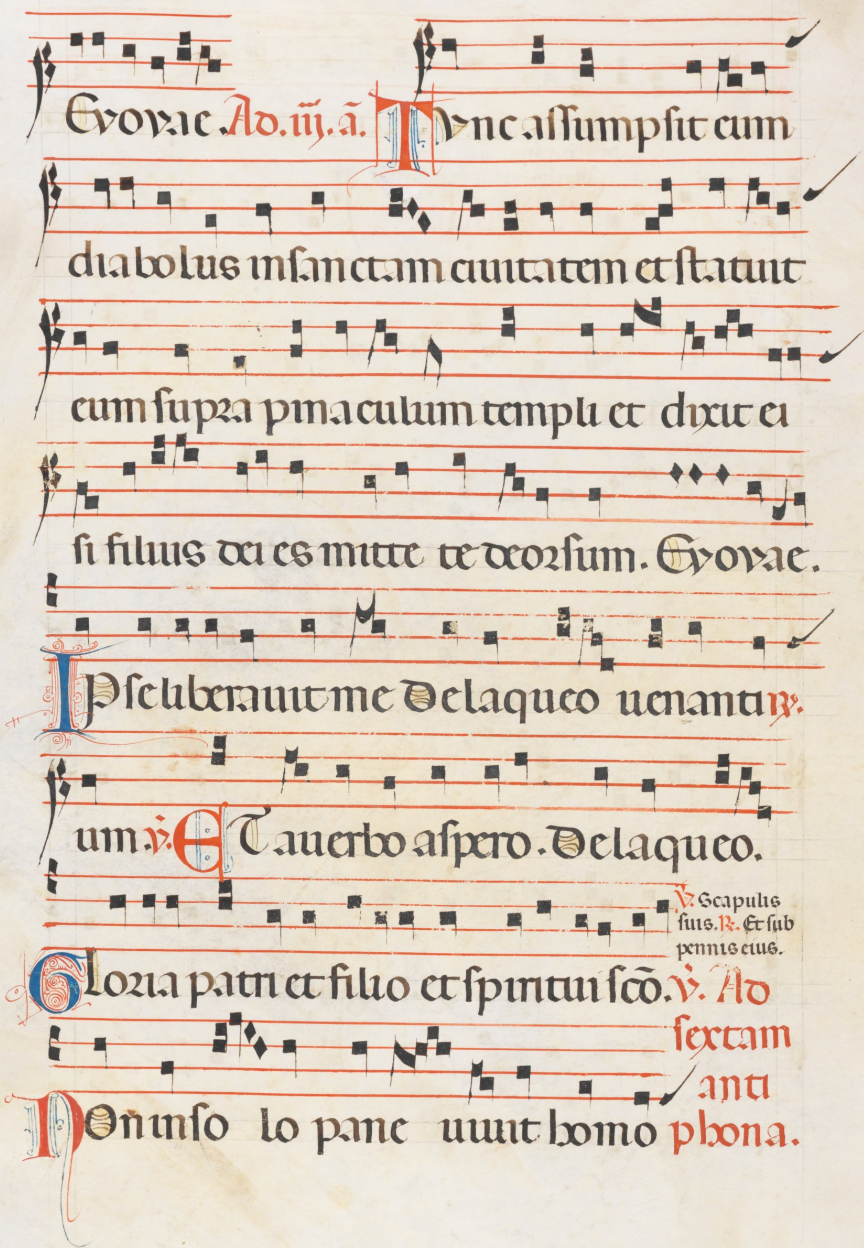 Evovae. Ad. iij. ā. Tvnc assumpsit eum
diabolus in sanctam ciuitatem et statuit
eum supra pinaculum templi et dixit ei
si filius dei es mitte te deorsum. Evovae.
IPse liberauit me De laqueo uenanti℟.
um. ℣. ET a uerbo aspero. De laqueo.
℣. Scapulis
suis. ℟. Et sub
pennis eius.
Gloria patri et filio et spiritui scō. ℣. Ad
sextam
anti
Non in solo pane uiuit homo phona.